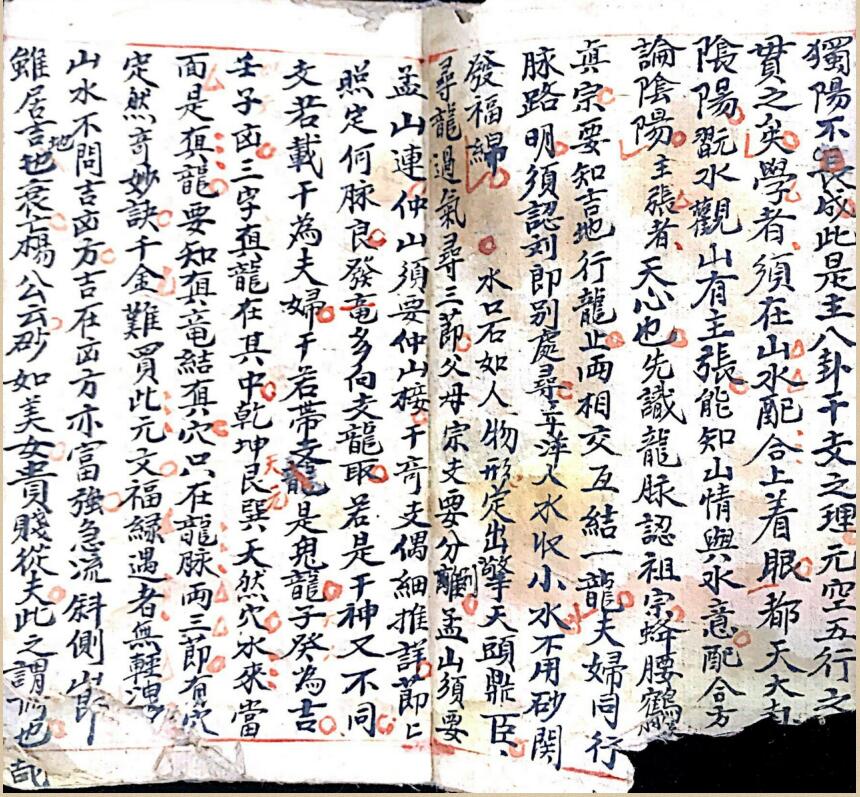 獨陽不長成此是主八卦干支之理元空五行之
貫之矣學者須在山水配合上着眼都天大卦
陰陽翫水觀山有主張能知山情與水意配合方
論陰陽主張者天心也先識龍脉認祖宗蜂腰鶴
真宗要知吉地行龍止兩相交互結一龍夫婦同行
脉路明須認刘郎別處尋平洋大水收小水不用砂関
發福綿水口石如人物形定出擎天頭鼎臣
尋龍過氣尋三節父母宗支要分離孟山須要
孟山連仲山須要仲山接干奇支偶細推詳節上
照定何脉良發竜多向支龍取若是干神又不同
支若載干為夫婦干若帶支龍是鬼龍子癸為吉
壬子凶三字真龍在其中乾坤艮巽天然穴水來當
天元
面是真龍要知真竜結真穴只在龍脉兩三節有穴
定然奇妙訣千金難買此元文福緣遇者無輕洩
山水不問吉凶方吉在凶方亦富強急流斜側山節
雖居吉地也衰亡楊公云砂如美女貴賤從夫此之謂也哉